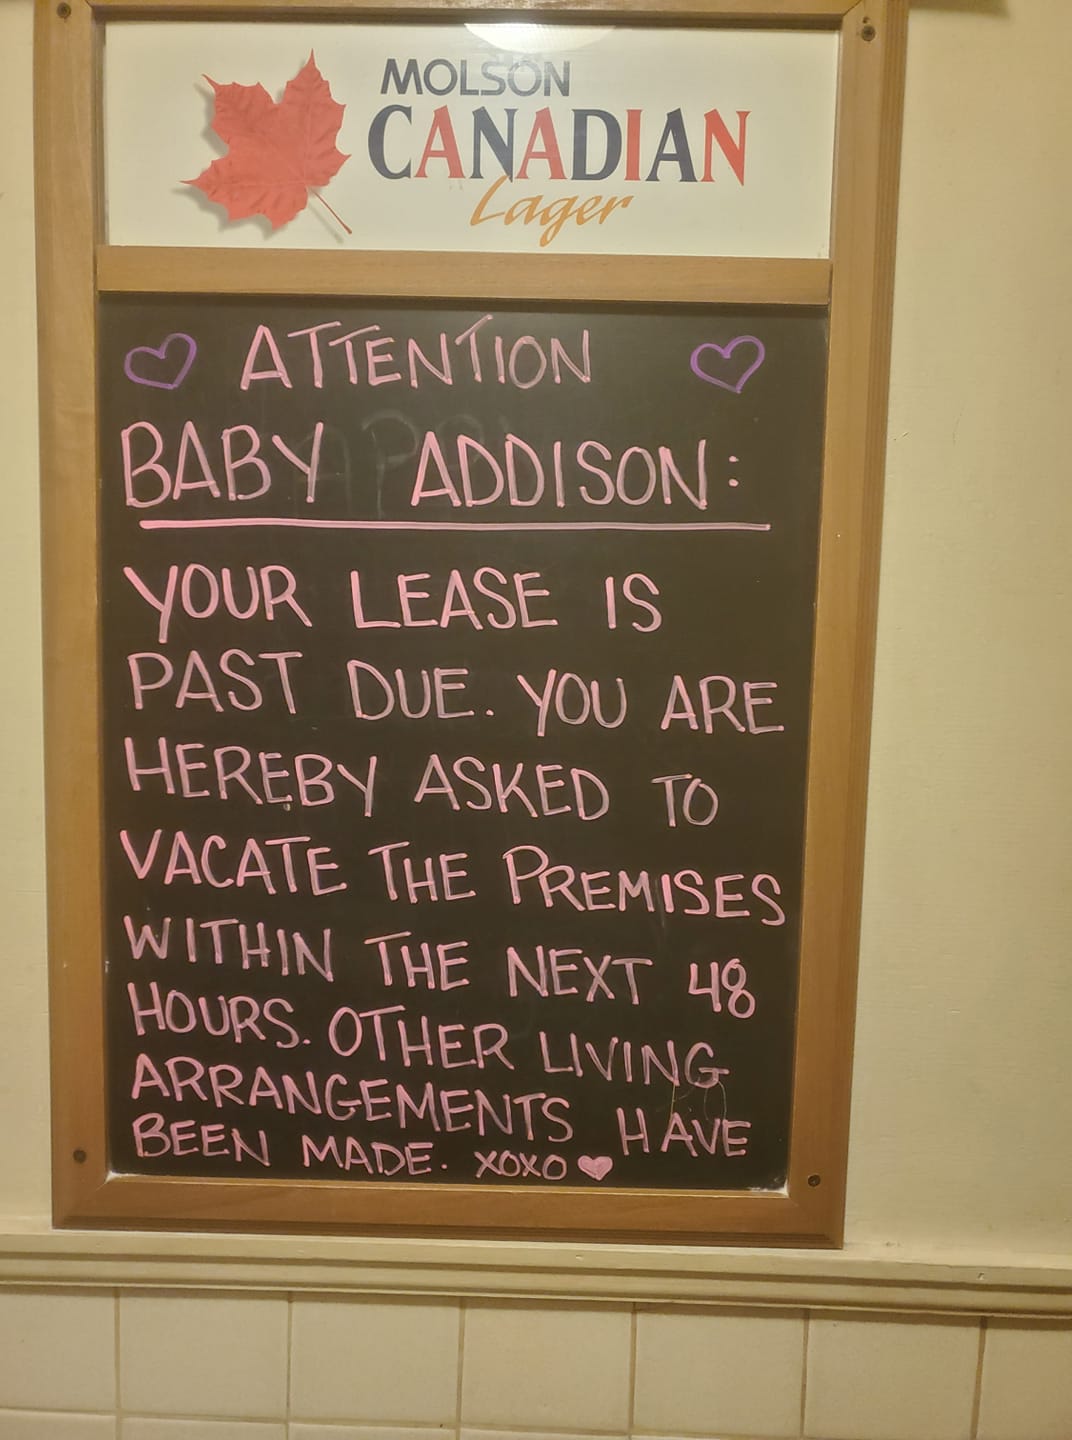 MOLSON
CANADIAN
Lager
ATTENTION
BABY ADDISON:
YOUR LEASE IS
PAST DUE. YOU ARE
HEREBY ASKED TO
VACATE THE PREMISES
WITHIN THE NEXT 48
HOURS. OTHER LIVING
ARRANGEMENTS HAVE
BEEN MADE. XOXO